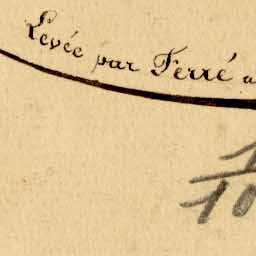 Levée par Ferré a
1
10